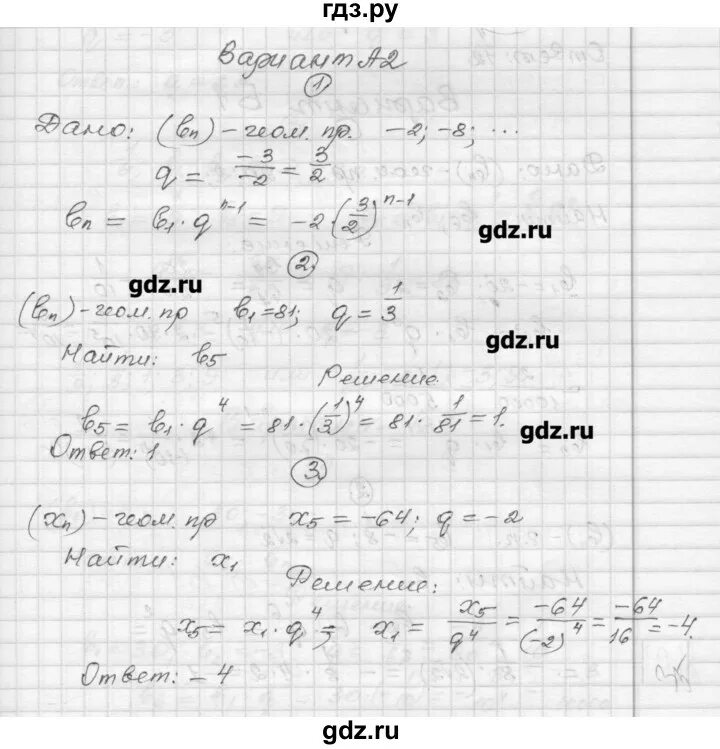 гдз.ру
Вариант А2
1
Дано: (bn) – геом. пр. –2; –8; ...
q = –3/–2 = 3/2
bn = b1 · q^n–1 = –2 · (3/2)^n–1
gdz.ru
2.
gdz.ru
(bn) – геом. пр b1 = 81; q = 1/3
gdz.ru
Найти: b5
Решение
b5 = b1 · q^4 = 81 · (1/3)^4 = 81 · 1/81 = 1.
gdz.ru
Ответ: 1
3.
(xn) – геом. пр x5 = –64; q = –2
Найти: x1
Решение:
x5 = x1 · q^4; x1 = x5/q^4 = –64/(–2)^4 = –64/16 = –4.
Ответ: –4
gdz.ru